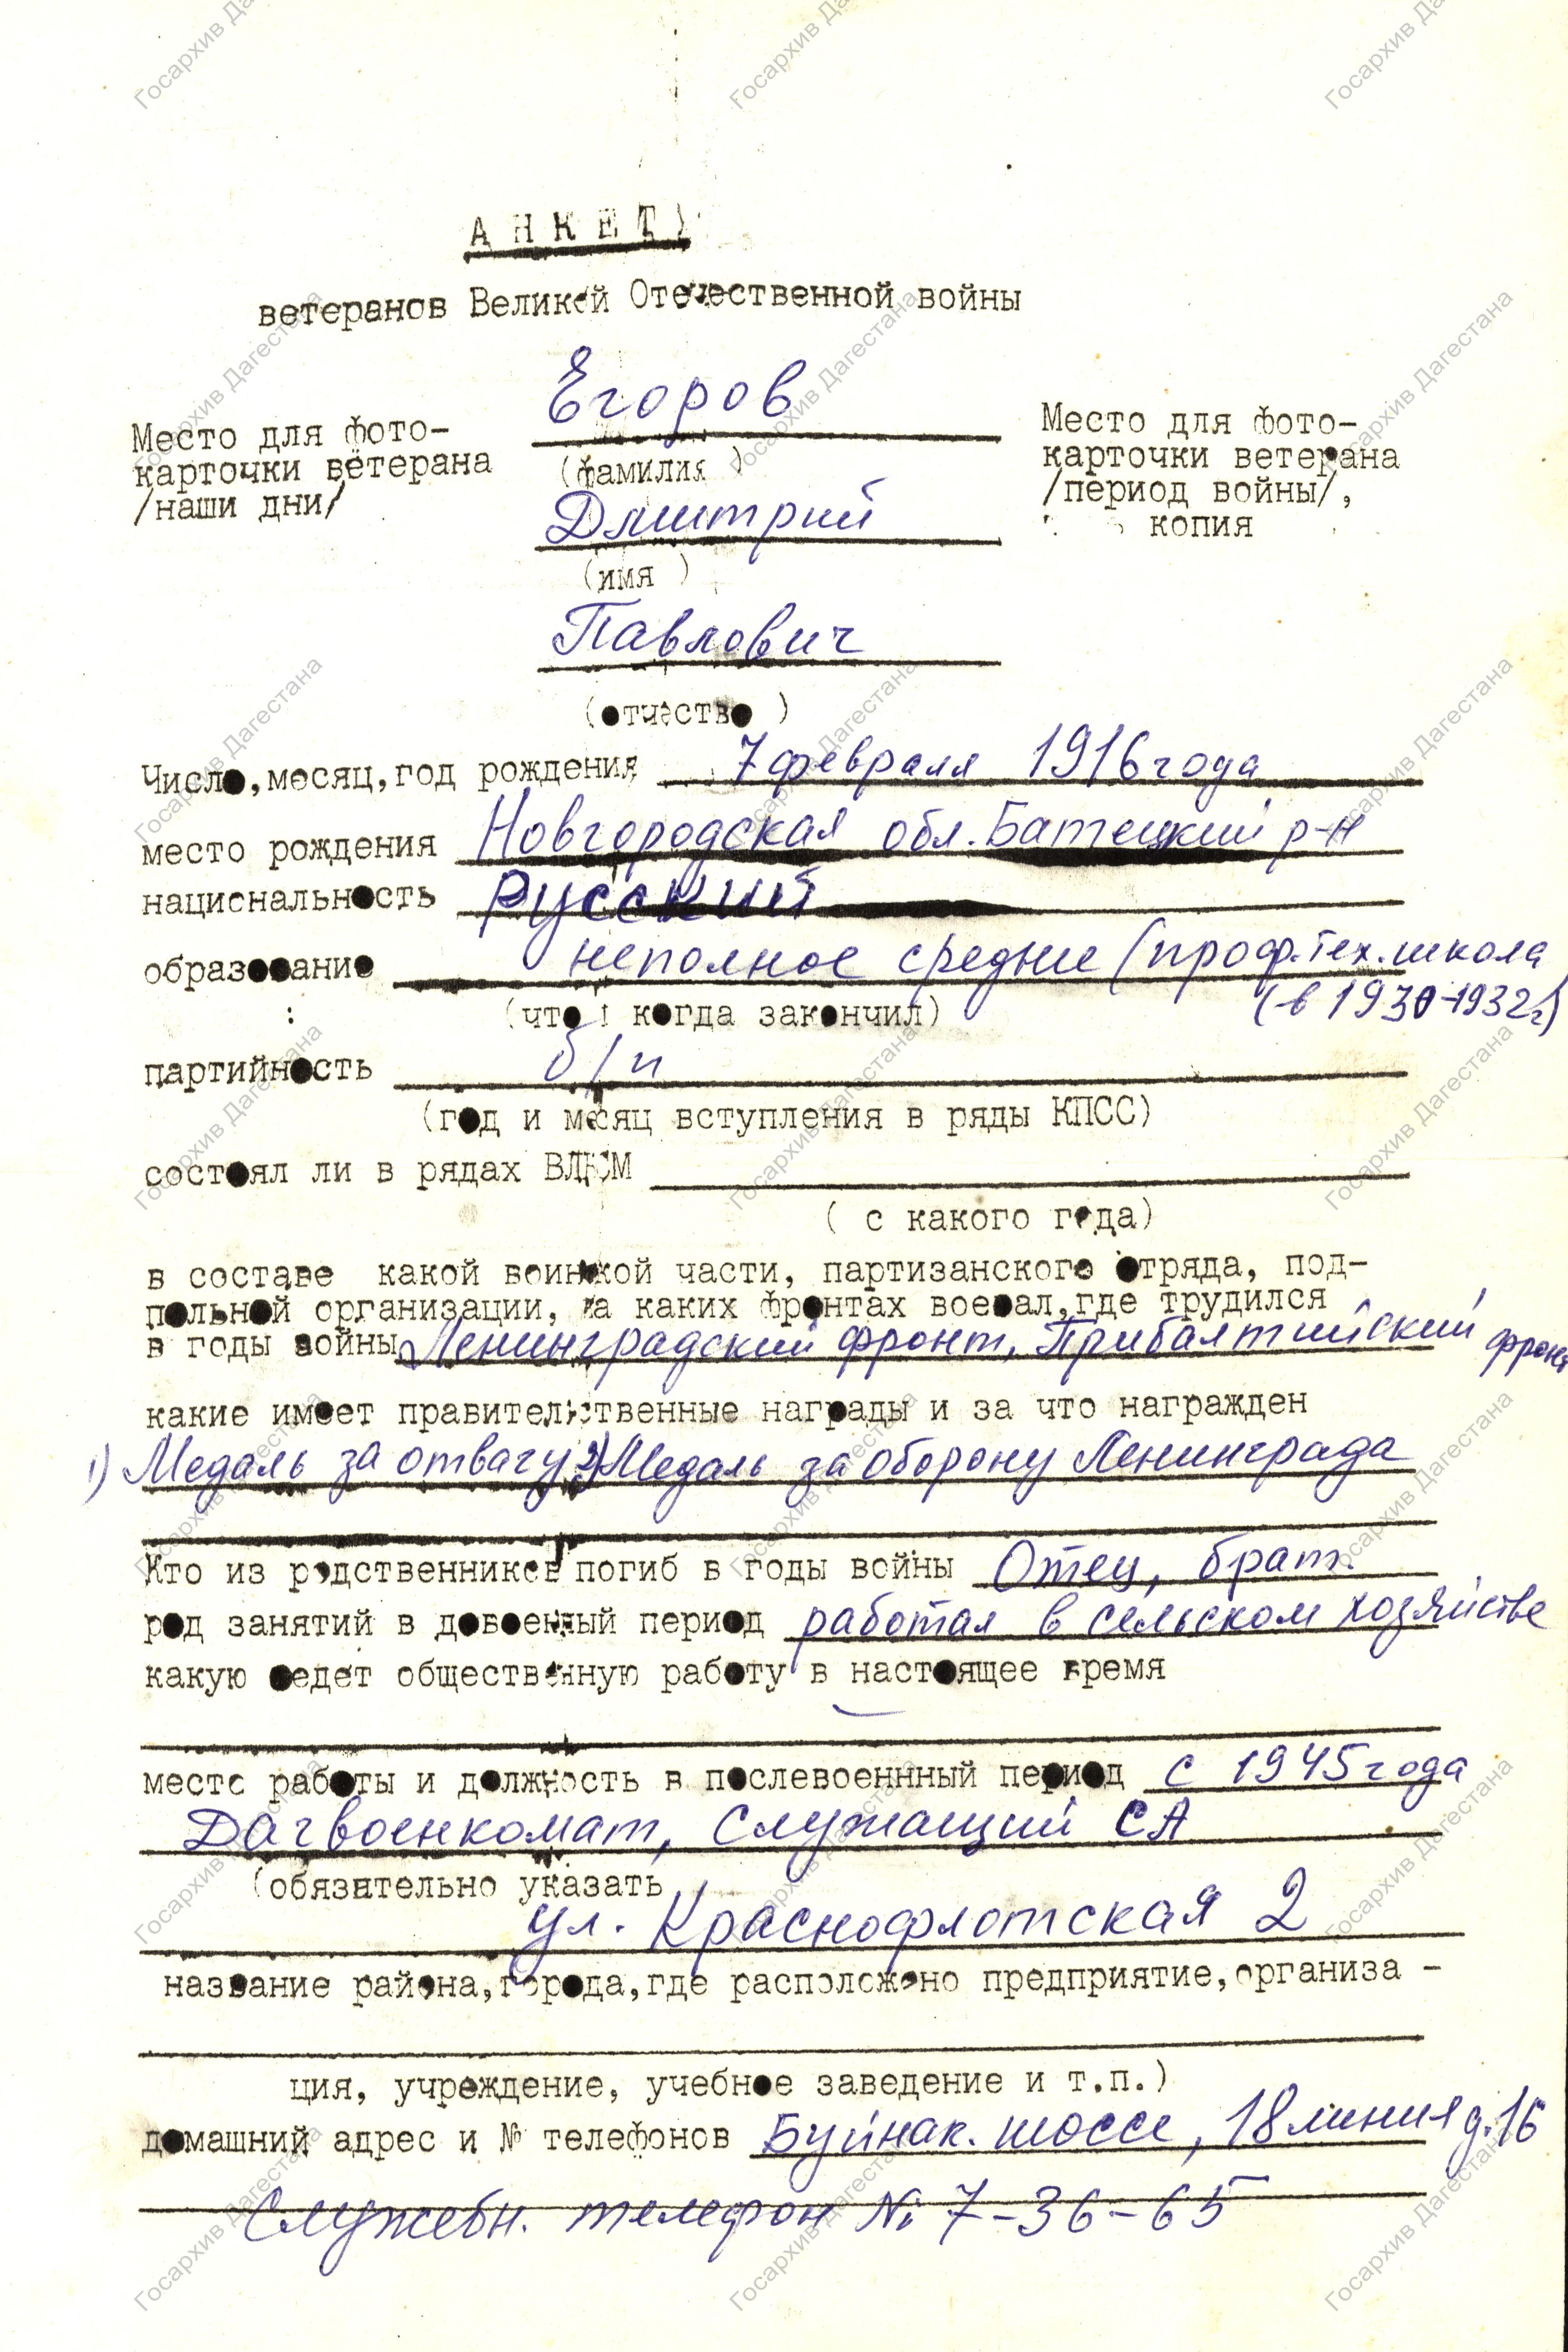 АНКЕТА
ветеранов Великой Отечественной войны
Место для фото-
карточки ветерана
/наши дни/
Егоров
(фамилия)
Дмитрий
(имя)
Павлович
(отчество)
Место для фото-
карточки ветерана
/период войны/,
копия
Число, месяц, год рождения 7 февраля 1916 года
место рождения Новгородская обл. Батецкий р-н
национальность Русский
образование неполное средние (проф.тех.школа
(в 1930-1932г)
(что и когда закончил)
партийность б/п
(год и месяц вступления в ряды КПСС)
состоял ли в рядах ВЛКСМ
( с какого года)
в составе какой воинской части, партизанского отряда, под-
польной организации, на каких фронтах воевал, где трудился
в годы войны Ленинградский фронт, Прибалтийский фронт
какие имеет правительственные награды и за что награжден
1) Медаль за отвагу 2) Медаль за оборону Ленинграда
Кто из родственников погиб в годы войны Отец, брат.
род занятий в довоенный период работал в сельском хозяйстве
какую ведет общественную работу в настоящее время
место работы и должность в послевоеннный период с 1945 года
Дагвоенкомат, Служащий СА
(обязательно указать
ул. Краснофлотская 2
название района, города, где расположено предприятие, организа -
ция, учреждение, учебное заведение и т.п.)
домашний адрес и № телефонов Буйнак. шоссе, 18 линия д.16
Служебн. телефон № 7-36-65
Госархив Дагестана